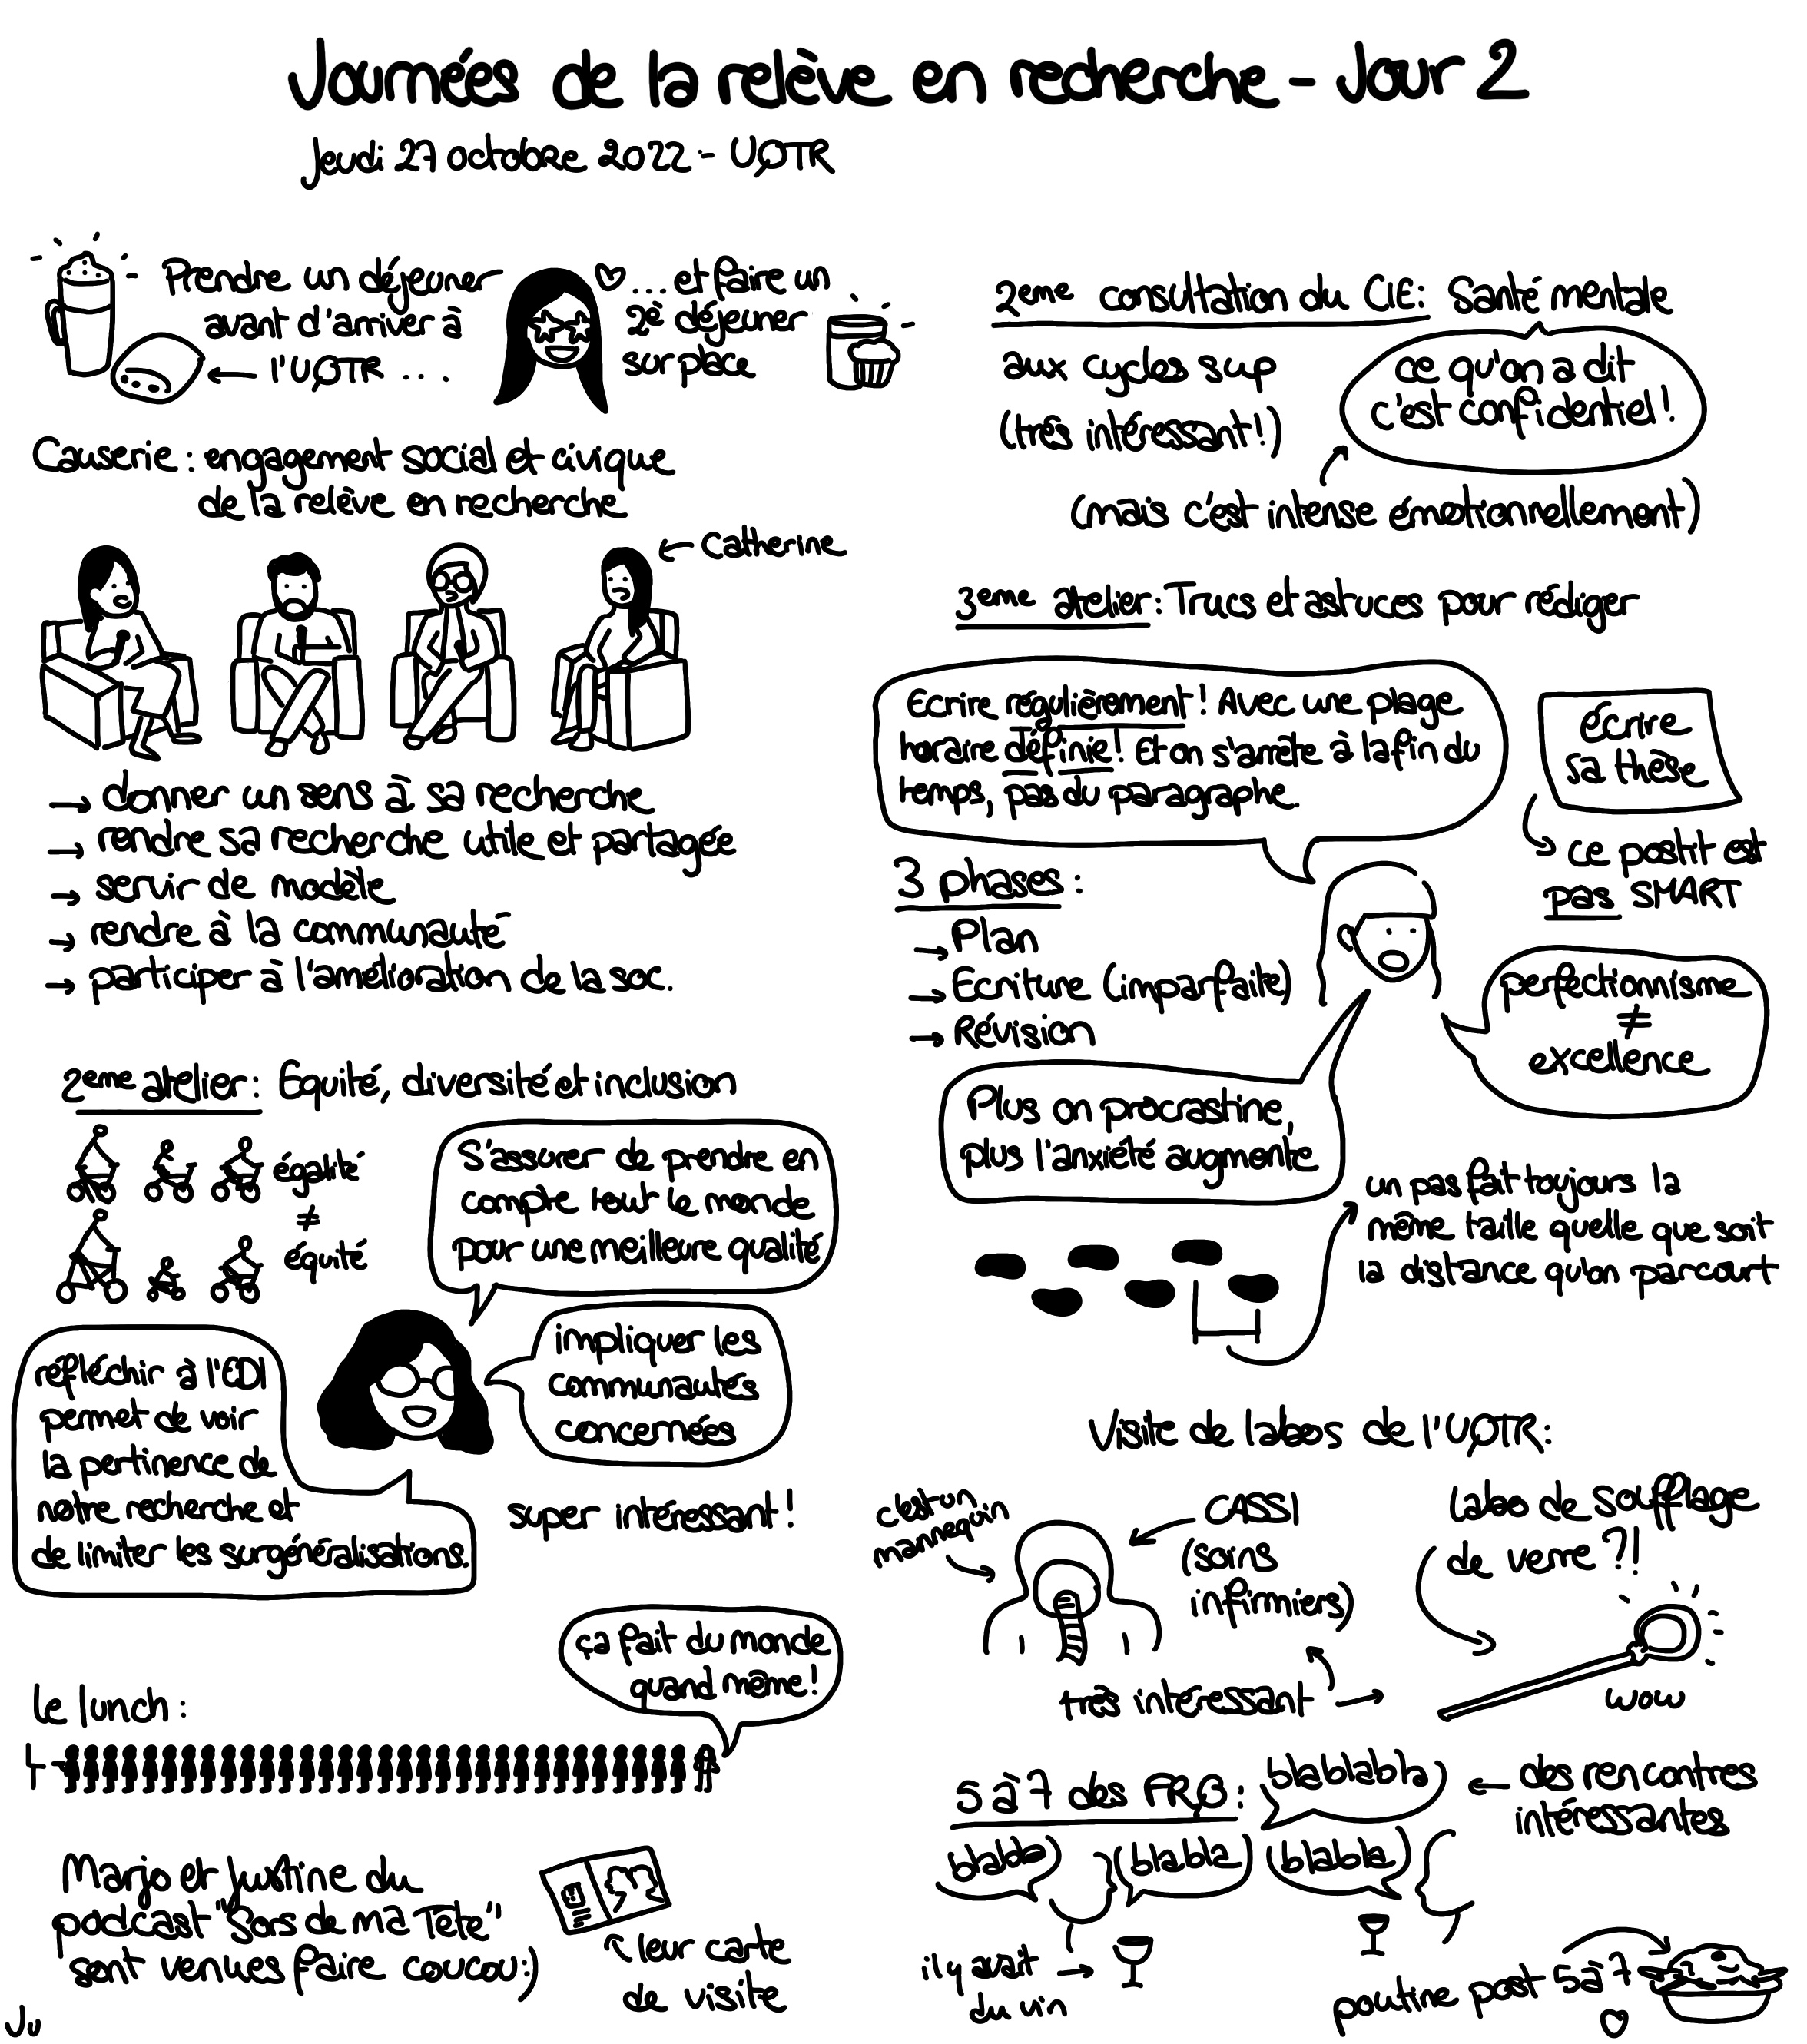 Journées de la relève en recherche - Jour 2
Jeudi 27 octobre 2022 - UQTR
Prendre un déjeuner
avant d'arriver à
l'UQTR ...
... et faire un
2è déjeuner
sur place
Causerie : engagement social et civique
de la relève en recherche
Catherine
→ donner un sens à sa recherche
→ rendre sa recherche utile et partagée
→ servir de modèle
→ rendre à la communauté
→ participer à l'amélioration de la soc.
2eme atelier : Equité, diversité et inclusion
égalité
≠
équité
S'assurer de prendre en
compte tout le monde
pour une meilleure qualité
impliquer les
communautés
concernées
réfléchir à l'EDI
permet de voir
la pertinence de
notre recherche et
de limiter les surgénéralisations.
super intéressant !
ça fait du monde
quand même !
Le lunch :
Marjo et Justine du
podcast "Sors de ma Tête"
sont venues faire coucou :)
leur carte
de visite
Ju
2eme consultation du CIE : Santé mentale
aux cycles sup
(très intéressant !)
ce qu'on a dit
c'est confidentiel !
(mais c'est intense émotionnellement)
3eme atelier : Trucs et astuces pour rédiger
Ecrire régulièrement ! Avec une plage
horaire définie ! Et on s'arrête à la fin du
temps, pas du paragraphe.
écrire
sa thèse
ce postit est
pas SMART
3 phases :
→ Plan
→ Ecriture (imparfaite)
→ Révision
perfectionnisme
≠
excellence
Plus on procrastine,
plus l'anxiété augmente
un pas fait toujours la
même taille quelle que soit
la distance qu'on parcourt
Visite de labos de l'UQTR :
c'est un
mannequin
CASSI
(soins
infirmiers)
labo de soufflage
de verre ?!
très intéressant
wow
5 à 7 des FRQ :
blablabla
des rencontres
intéressantes
blabla
blabla
blabla
il y avait
du vin
poutine post 5 à 7